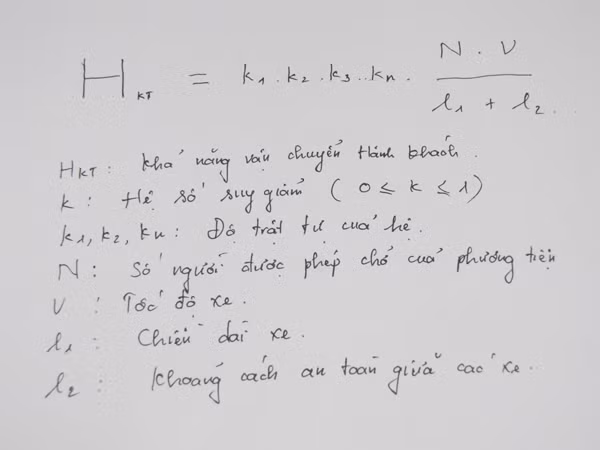 H_KT = k1 . k2 . k3 .. kn . (N . V) / (l1 + l2) .
HKT : khả năng vận chuyển Hành khách .
k : Hệ số suy giảm ( 0 ≤ k ≤ 1 )
k1, k2, kn : Độ trật tự của hệ .
N : Số người được phép chở của phương tiện
V : Tốc độ xe .
l1 : Chiều dài xe .
l2 : Khoảng cách an toàn giữa các xe .